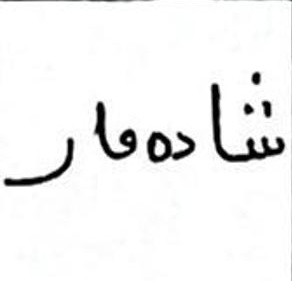 شادەمار